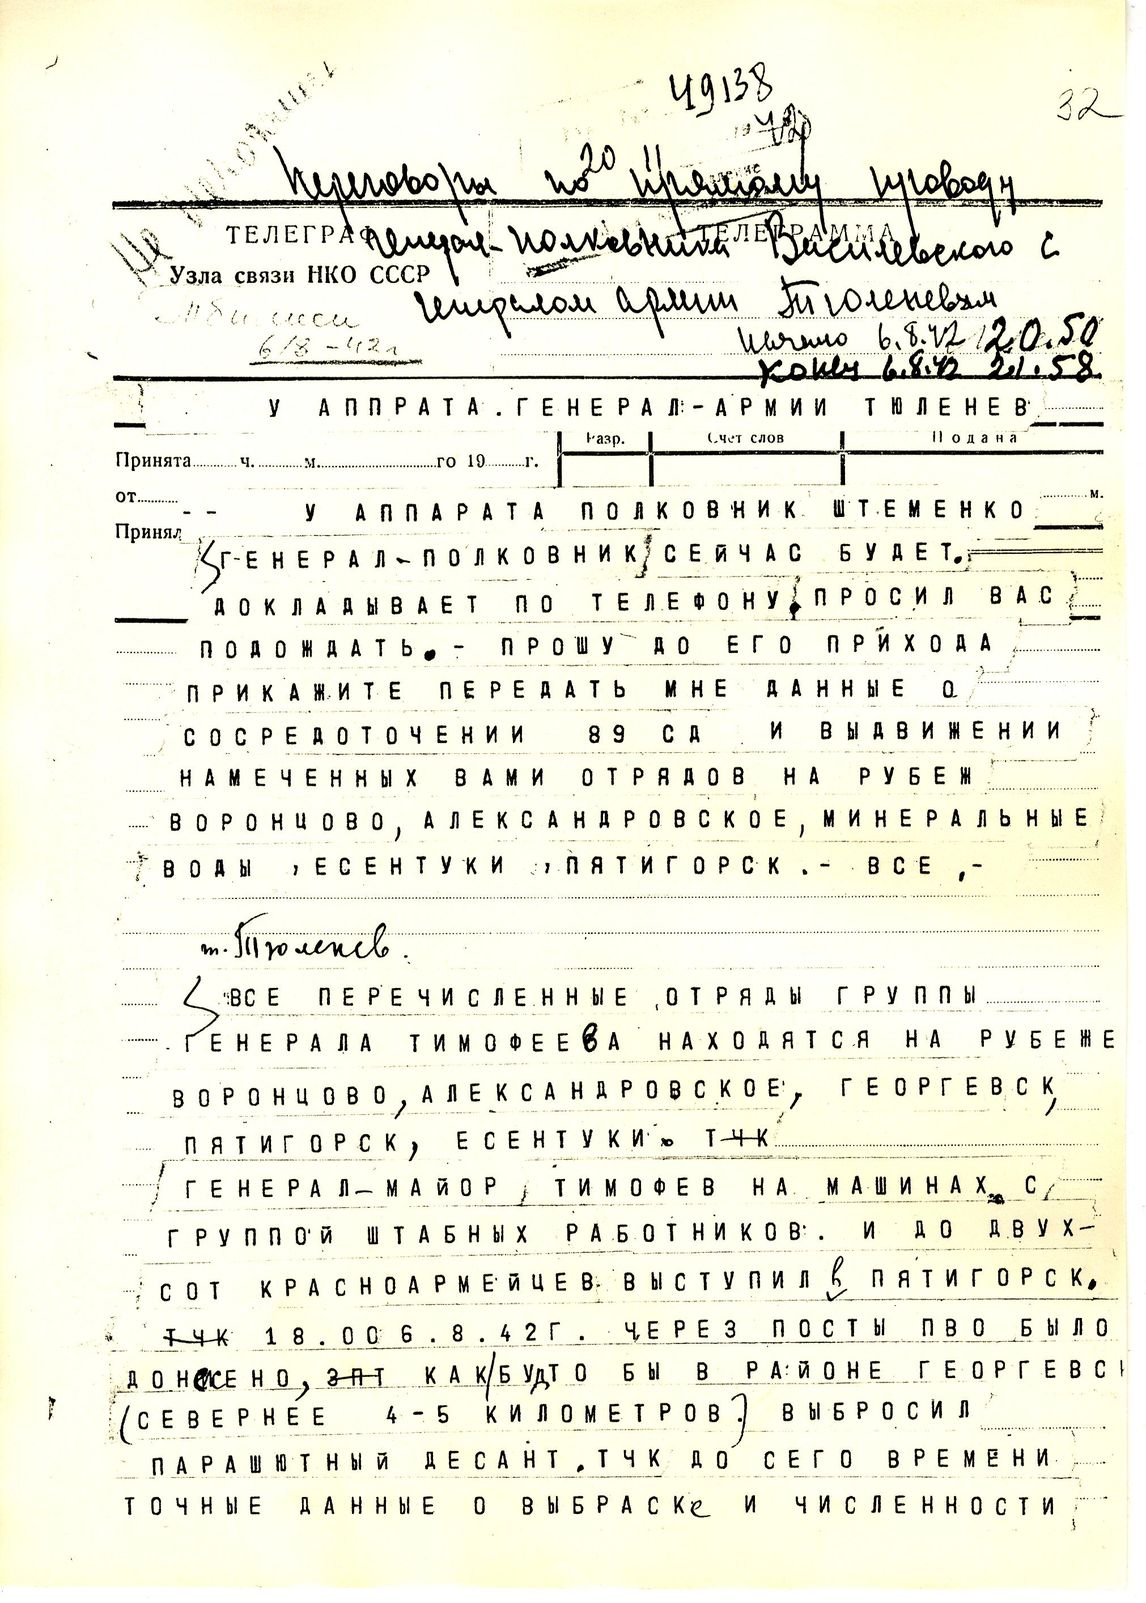 49138
32
Переговоры по прямому проводу
ТЕЛЕГРАФ ТЕЛЕГРАММА
генерал-полковника Василевского с
Узла связи НКО СССР
генералом армии Тюленевым
Тбилиси
начало 6.8.42 20.50
6/8-42г
конец 6.8.42 21.58.
У АППРАТА.ГЕНЕРАЛ-АРМИИ ТЮЛЕНЕВ
Разр. Счет слов Подана
Принята ч. м. го 19 г.
от м.
-- У АППАРАТА ПОЛКОВНИК ШТЕМЕНКО
Принял
ГЕНЕРАЛ-ПОЛКОВНИК СЕЙЧАС БУДЕТ.
ДОКЛАДЫВАЕТ ПО ТЕЛЕФОНУ, ПРОСИЛ ВАС
ПОДОЖДАТЬ.- ПРОШУ ДО ЕГО ПРИХОДА
ПРИКАЖИТЕ ПЕРЕДАТЬ МНЕ ДАННЫЕ О
СОСРЕДОТОЧЕНИИ 89 СД И ВЫДВИЖЕНИИ
НАМЕЧЕННЫХ ВАМИ ОТРЯДОВ НА РУБЕЖ
ВОРОНЦОВО,АЛЕКСАНДРОВСКОЕ,МИНЕРАЛЬНЫЕ
ВОДЫ ,ЕСЕНТУКИ ,ПЯТИГОРСК.- ВСЕ ,-
т. Тюленев.
ВСЕ ПЕРЕЧИСЛЕННЫЕ ОТРЯДЫ ГРУППЫ
ГЕНЕРАЛА ТИМОФЕЕВА НАХОДЯТСЯ НА РУБЕЖЕ
ВОРОНЦОВО,АЛЕКСАНДРОВСКОЕ, ГЕОРГЕВСК,
ПЯТИГОРСК, ЕСЕНТУКИ. ТЧК
ГЕНЕРАЛ-МАЙОР ТИМОФЕВ НА МАШИНАХ С
ГРУППОЙ ШТАБНЫХ РАБОТНИКОВ. И ДО ДВУХ-
СОТ КРАСНОАРМЕЙЦЕВ ВЫСТУПИЛ в ПЯТИГОРСК.
ТЧК 18.00 6.8.42Г. ЧЕРЕЗ ПОСТЫ ПВО БЫЛО
ДОНЕСЕНО, ЗПТ КАК БУДТО БЫ В РАЙОНЕ ГЕОРГЕВСК
(СЕВЕРНЕЕ 4-5 КИЛОМЕТРОВ) ВЫБРОСИЛ
ПАРАШЮТНЫЙ ДЕСАНТ.ТЧК ДО СЕГО ВРЕМЕНИ
ТОЧНЫЕ ДАННЫЕ О ВЫБРАСКе И ЧИСЛЕННОСТИ